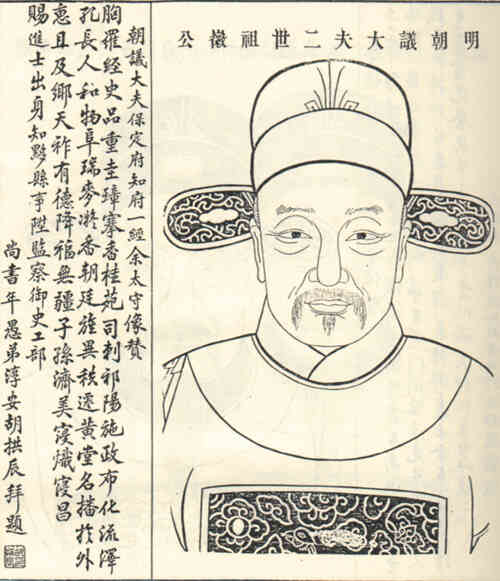 明朝議大夫二世祖公
朝議大夫保定府知府一經余太守像贊
胸羅經史品重圭璋搴香桂苑司刺祁陽施政布化流澤
孔長人和物阜瑞麥凝香朝廷旌異秩遷黃堂名播於外
憲且及鄉天祚有德降福無疆子孫濟美寖熾寖昌
賜進士出身知黟縣事陞監察御史工部
尚書年愚弟淳安胡拱辰拜題